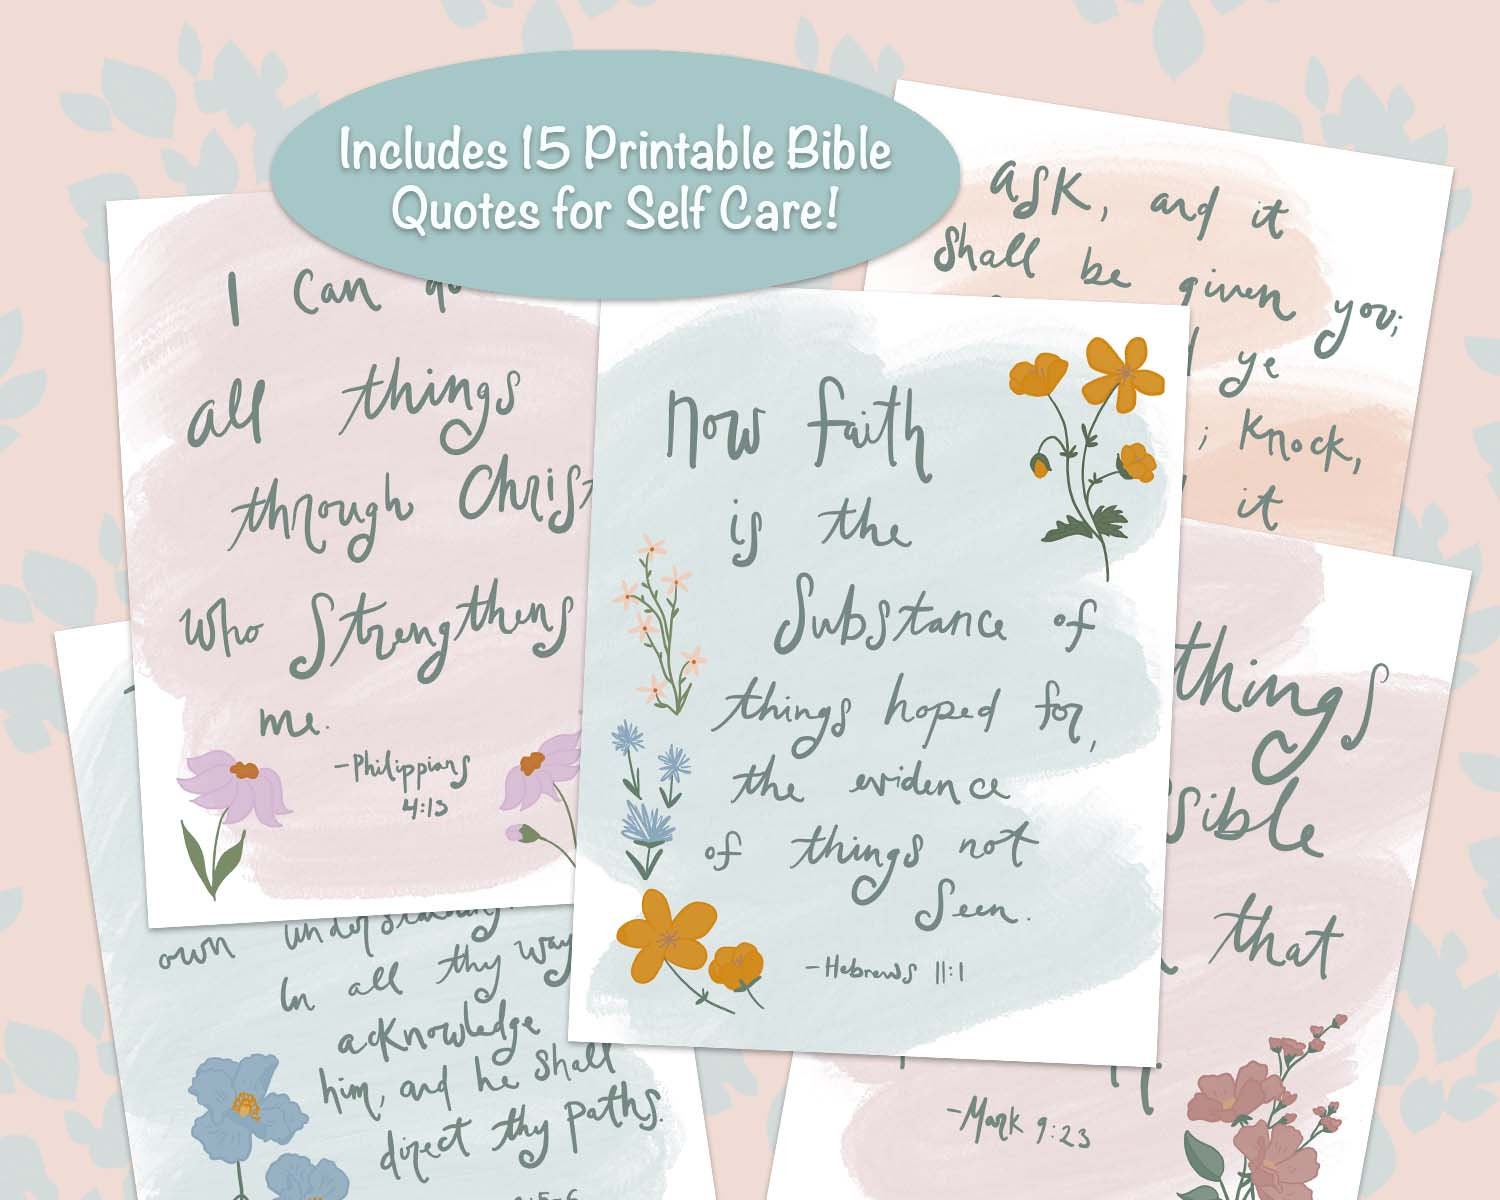 Includes 15 Printable Bible
Quotes for Self Care!
I can do
all things
through Christ
who strengthens
me.
-Philippians
4:13
ask, and it
shall be given you;
ye
; knock,
it
Now faith
is the
substance of
things hoped for,
the evidence
of things not
seen.
-Hebrews 11:1
own understanding.
In all thy way
acknowledge
him, and he shall
direct thy paths.
:5-6
things
sible
that
-Mark 9:23